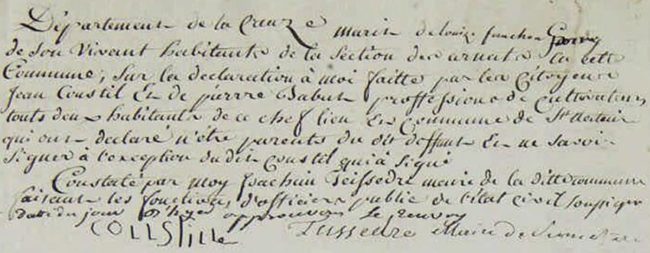 Département de la Creuze marit de louize fanchon
de son vivant habitante de la section des arnats la ditte
Commune, Sur la declaration à moi faitte par les citoyens
Jean Coustil Et de pierre Babut proffessions de cultivateurs
touts deux habitants de ce chef lieu Et Commune de St
qui ont declaré n'etre parents du dit deffunt Et ne savoir
Signer à l'exception du dit Coustil qui a signé
Constaté par Moy Joachin Teissedre maire de la ditte commune
faisant les fonctions d'officier public de l'état civil soussigné
datte du jour approuvons le renvoy
COUSTille Maire de